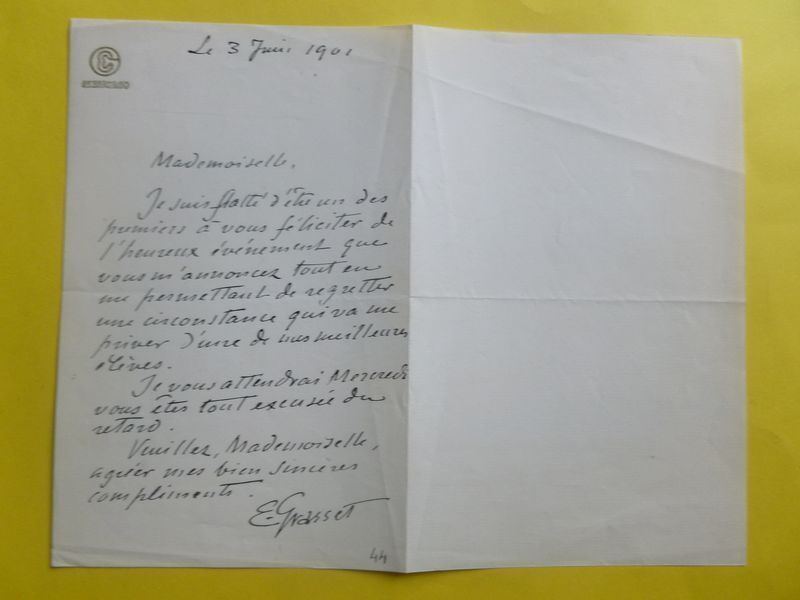 Le 3 Juin 1901
Mademoiselle,
Je suis flatté d'être un des
premiers à vous féliciter de
l'heureux événement que
vous m'annoncez tout en
me permettant de regretter
une circonstance qui va me
priver d'une de mes meilleures
élèves.
Je vous attendrai Mercredi
vous êtes tout excusée du
retard.
Veuillez, Mademoiselle,
agréer mes bien sincères
compliments.
E. Grasset
44